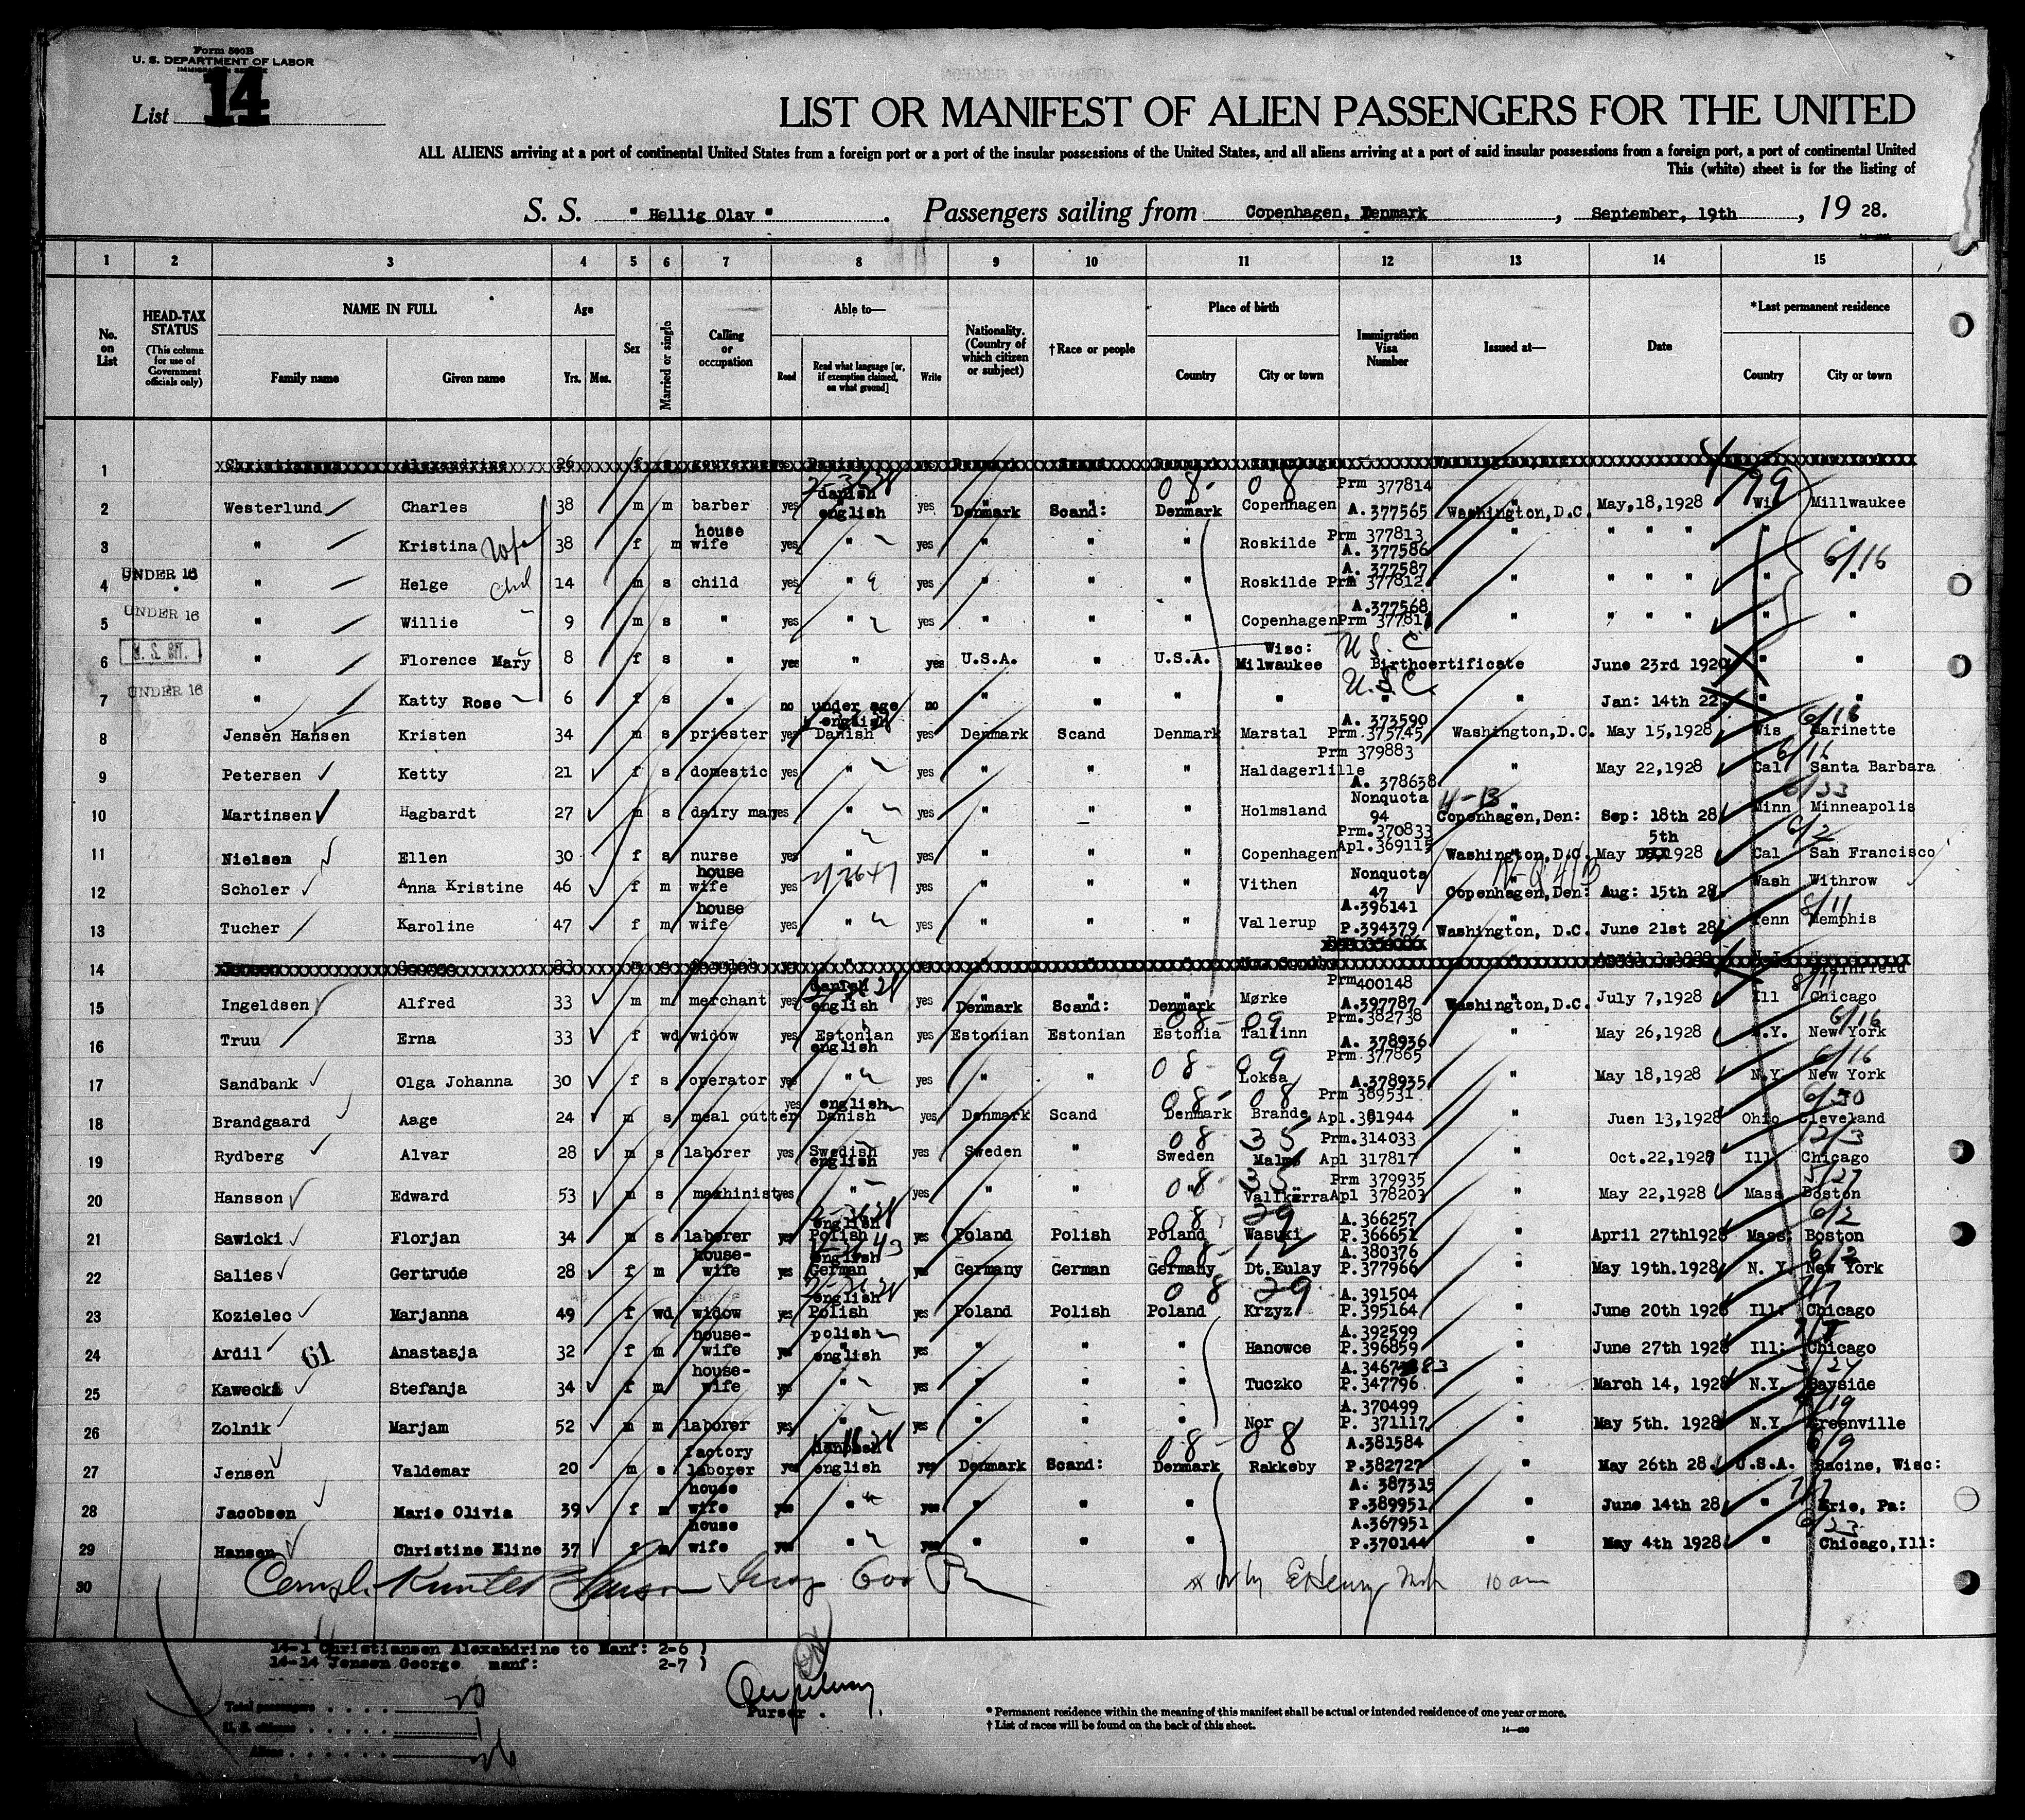 Form 500B
U. S. DEPARTMENT OF LABOR
List 14
LIST OR MANIFEST OF ALIEN PASSENGERS FOR THE UNITED
ALL ALIENS arriving at a port of continental United States from a foreign port or a port of the insular possessions of the United States, and all aliens arriving at a port of said insular possessions from a foreign port, a port of continental United
This (white) sheet is for the listing of
S. S. " Hellig Olav " . Passengers sailing from Copenhagen, Denmark , September, 19th , 19 28.
1 2 3 4 5 6 7 8 9 10 11 12 13 14 15
No. on List
HEAD-TAX STATUS (This column for use of Government officials only)
NAME IN FULL Family name Given name
Age Yrs. Mos.
Sex
Married or single
Calling or occupation
Able to— Read Read what language [or, if exemption claimed, on what ground] Write
Nationality. (Country of which citizen or subject)
†Race or people
Place of birth Country City or town
Immigration Visa Number
Issued at—
Date
*Last permanent residence Country City or town
1
2 Westerlund Charles 38 m m barber yes danish english yes Denmark Scand: Denmark Copenhagen Prm 377814 A. 377565 Washington, D.C. May,18,1928 Wis Millwaukee
3 " Kristina 38 f m house wife yes " yes " " " Roskilde Prm 377813 A. 377586 " " " " " "
UNDER 16
4 " Helge 14 m s child yes " yes " " " Roskilde A. 377587 Prm 377812 " " " " " " 6/16
UNDER 16
5 " Willie 9 m s " yes " yes " " " Copenhagen A.377568 Prm 37781 " " " " " "
6 " Florence Mary 8 f s " yes " yes U.S.A. " U.S.A. Wisc: Milwaukee U.S.C Birthcertificate June 23rd 1920 " "
UNDER 16
7 " Katty Rose 6 f s " no under age no " " " " U.S.C. " " Jan: 14th 22. " "
8 Jensen Hansen Kristen 34 m s priester yes english Danish yes Denmark Scand Denmark Marstal A. 373590 Prm.375745 Washington,D.C. May 15,1928 Wis Marinette 6/16
9 Petersen Ketty 21 f s domestic yes " yes " " " Haldagerlille Prm 379883 A. 378638 " May 22,1928 Cal Santa Barbara 6/16
10 Martinsen Hagbardt 27 m s dairy man yes " yes " " " Holmsland Nonquota 94 Copenhagen,Den: Sep: 18th 28 Minn Minneapolis
11 Nielsen Ellen 30 f s nurse yes " yes " " " Copenhagen Prm.370833 Apl.369115 Washington,D.C. May 5th 1928 Cal San Francisco 6/2
12 Scholer Anna Kristine 46 f m house wife yes yes " " " Vithen Nonquota 47 Copenhagen,Den: Aug: 15th 28 Wash Withrow
13 Tucher Karoline 47 f m house wife yes " yes " " " Vallerup A.396141 P.394379 Washington, D.C. June 21st 28 Tenn Memphis 8/11
14
15 Ingeldsen Alfred 33 m m merchant yes danish english yes Denmark Scand: Denmark Mørke Prm400148 A.397787 Washington,D.C. July 7,1928 Ill Chicago 8/11
16 Truu Erna 33 f wd widow yes Estonian english yes Estonian Estonian Estonia Tallinn Prm.382738 A. 378936 " May 26,1928 N.Y. New York 6/16
17 Sandbank Olga Johanna 30 f s operator yes " yes " " " Loksa Prm 377865 A.378935 " May 18,1928 N.Y. New York 6/16
18 Brandgaard Aage 24 m s meal cutter yes english Danish yes Denmark Scand Denmark Brande Prm 389531 Apl.381944 " Juen 13,1928 Ohio Cleveland 6/30
19 Rydberg Alvar 28 m s laborer yes Swedish english yes Sweden " Sweden Malmø Prm.314033 Apl 317817 " Oct.22,1927 Ill Chicago 12/3
20 Hansson Edward 53 m s mashinist yes " yes " " " Vallkärra Prm 379935 Apl 378203 " May 22,1928 Mass Boston 5/27
21 Sawicki Florjan 34 m s laborer yes english Polish yes Poland Polish Poland Wasuki A. 366257 P. 366651 " April 27th1928 Mass: Boston 6/2
22 Salies Gertrude 28 f m house-wife yes english German yes Germany German Germany Dt.Eulay A. 380376 P. 377966 " May 19th.1928 N. Y. New York
23 Kozielec Marjanna 49 f wd widow yes english Polish yes Poland Polish Poland Krzyz A. 391504 P. 395164 " June 20th 1928 Ill: Chicago 7/7
24 Ardil 61 Anastasja 32 f m house-wife yes polish english yes " " " Hanowce A. 392599 P. 396859 " June 27th 1928 Ill: Chicago
25 Kawecka Stefanja 34 f m house-wife yes " yes " " " Tuczko P.347796 " March 14, 1928 N.Y. Bayside
26 Zolnik Marjam 52 m m laborer yes " yes " " " Nor A. 370499 P. 371117 " May 5th. 1928 N.Y. Greenville
27 Jensen Valdemar 20 m s factory laborer yes english yes Denmark Scand: Denmark Rakkeby A.381584 P.382727 " May 26th 28. U.S.A. Racine, Wisc:
28 Jacobsen Marie Olivia 39 f m house wife yes " yes " " " A. 387315 P.389951 " June 14th 28 " Erie, Pa: 7/7
29 Hansen Christine Eline 37 f m house wife yes " yes " " " A.367951 P.370144 " May 4th 1928 " Chicago,Ill: 6/23
30
14-1 Christiansen Alexandrine to Manf: 2-6 )
14-14 Jensen George manf: 2-7 )
Purser .
Total passengers
U. S. citizens
Aliens
* Permanent residence within the meaning of this manifest shall be actual or intended residence of one year or more.
† List of races will be found on the back of this sheet.